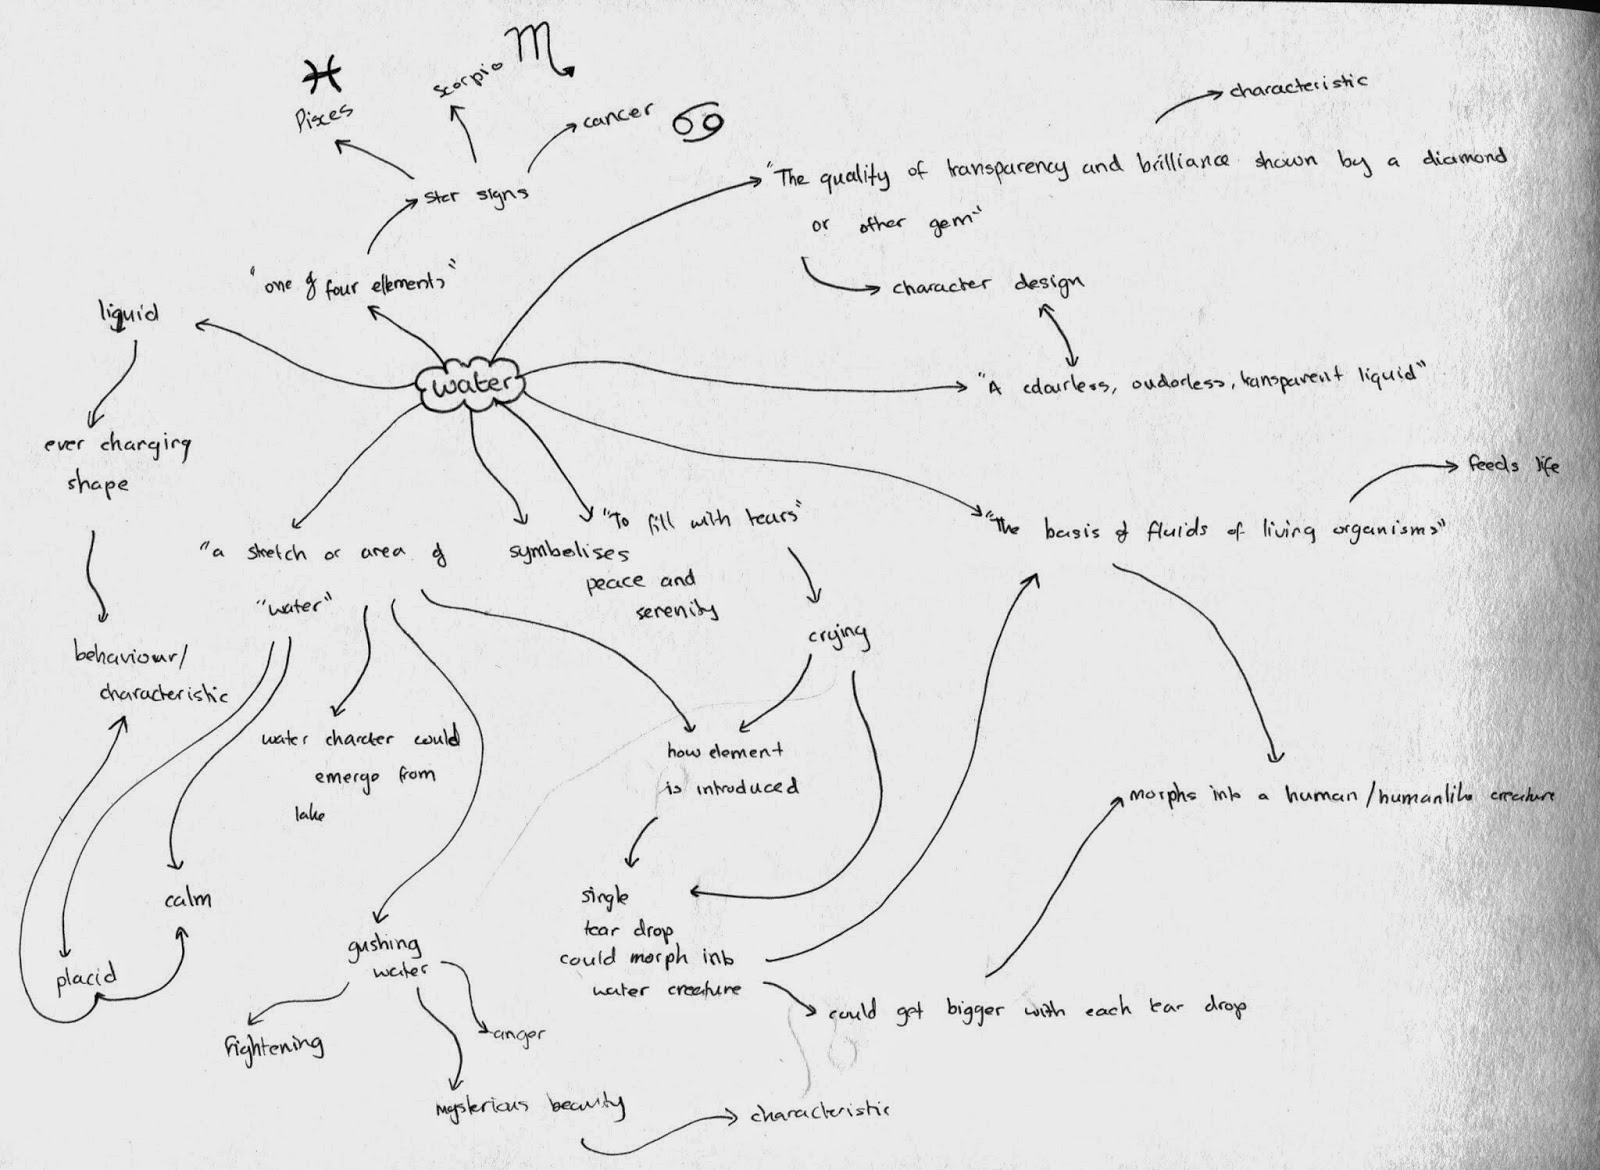 Scorpio
Pisces
cancer
characteristic
"The quality of transparency and brilliance shown by a diamond
or other gem"
star signs
character design
"one of four elements"
liquid
water
"A colourless, oudorless, transparent liquid"
ever changing
shape
feeds life
"To fill with tears"
"The basis of fluids of living organisms"
"a stretch or area of
"water"
symbolises
peace and
serenity
crying
behaviour/
characteristic
water charcter could
emerge from
lake
how element
is introduced
morphs into a human/humanlike creature
calm
single
tear drop
could morph into
water creature
gushing
water
placid
could get bigger with each tear drop
frightening
anger
mysterious beauty
characteristic